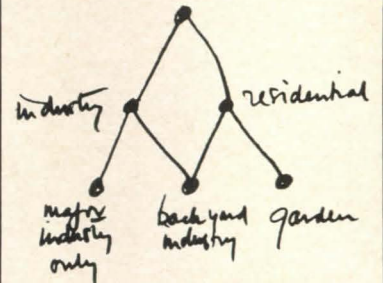 industry
residential
major
industry
only
backyard
industry
garden